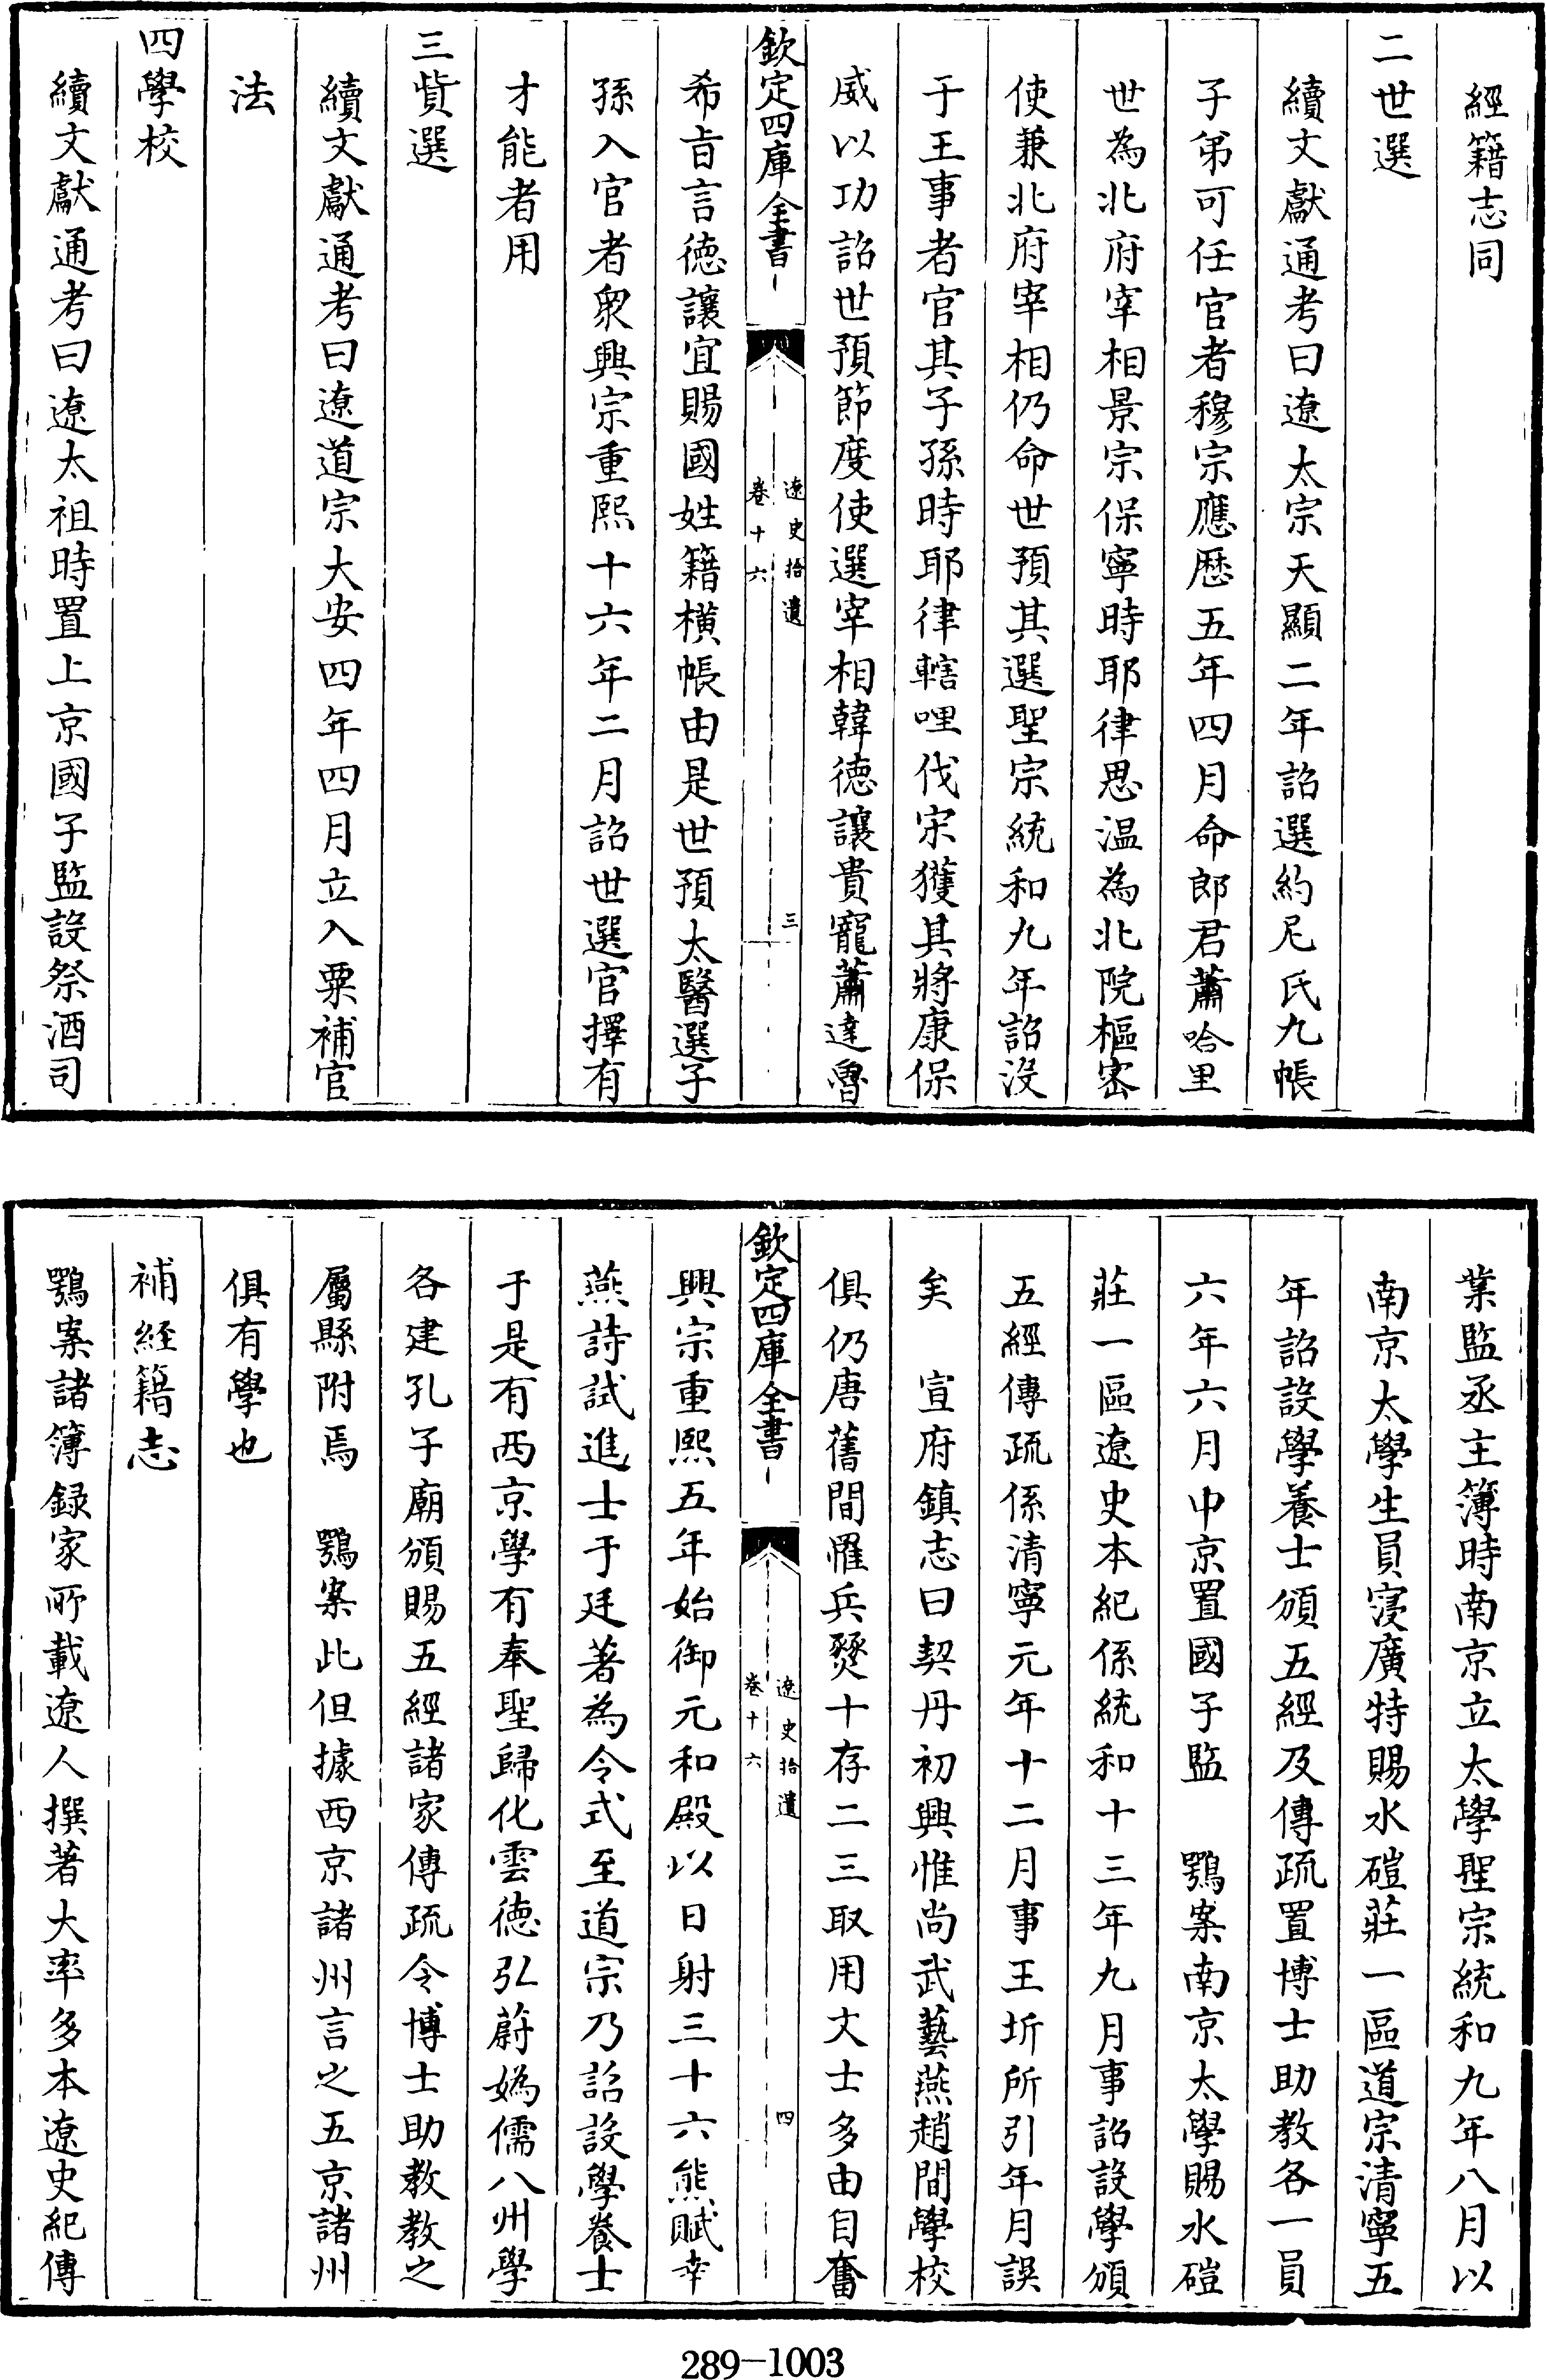 經籍志同
二世選
續文獻通考曰遼太宗天顯二年詔選約尼氏九帳
子弟可任官者穆宗應歷五年四月命郎君蕭哈里
世為北府宰相景宗保寧時耶律思温為北院樞密
使兼北府宰相仍命世預其選聖宗統和九年詔没
于王事者官其子孫時耶律轄哩伐宋獲其將康保
威以功詔世預節度使選宰相韓徳讓貴寵蕭達魯
欽定四庫全書
遼史拾遺
卷十六
三
希㫖言徳讓宜賜國姓籍横帳由是世預太醫選子
孫入官者衆興宗重熙十六年二月詔世選官擇有
才能者用
三貲選
續文獻通考曰遼道宗大安四年四月立入粟補官
法
四學校
續文獻通考曰遼太祖時置上京國子監設祭酒司
業監丞主簿時南京立太學聖宗統和九年八月以
南京太學生員寖廣特賜水磑莊一區道宗清寧五
年詔設學養士頒五經及傳疏置博士助教各一員
六年六月中京置國子監　鶚案南京太學賜水磑
莊一區遼史本紀係統和十三年九月事詔設學頒
五經傳疏係清寧元年十二月事王圻所引年月誤
矣　宣府鎮志曰契丹初興惟尚武藝燕趙間學校
俱仍唐舊間罹兵燹十存二三取用文士多由自奮
欽定四庫全書
遼史拾遺
卷十六
四
興宗重熙五年始御元和殿以日射三十六熊賦幸
燕詩試進士于廷著為令式至道宗乃詔設學養士
于是有西京學有奉聖歸化雲徳弘蔚媯儒八州學
各建孔子廟頒賜五經諸家傳疏令博士助教教之
屬縣附焉　鶚案此但據西京諸州言之五京諸州
俱有學也
補經籍志
鶚案諸簿録家所載遼人撰著大率多本遼史紀傳
289-1003